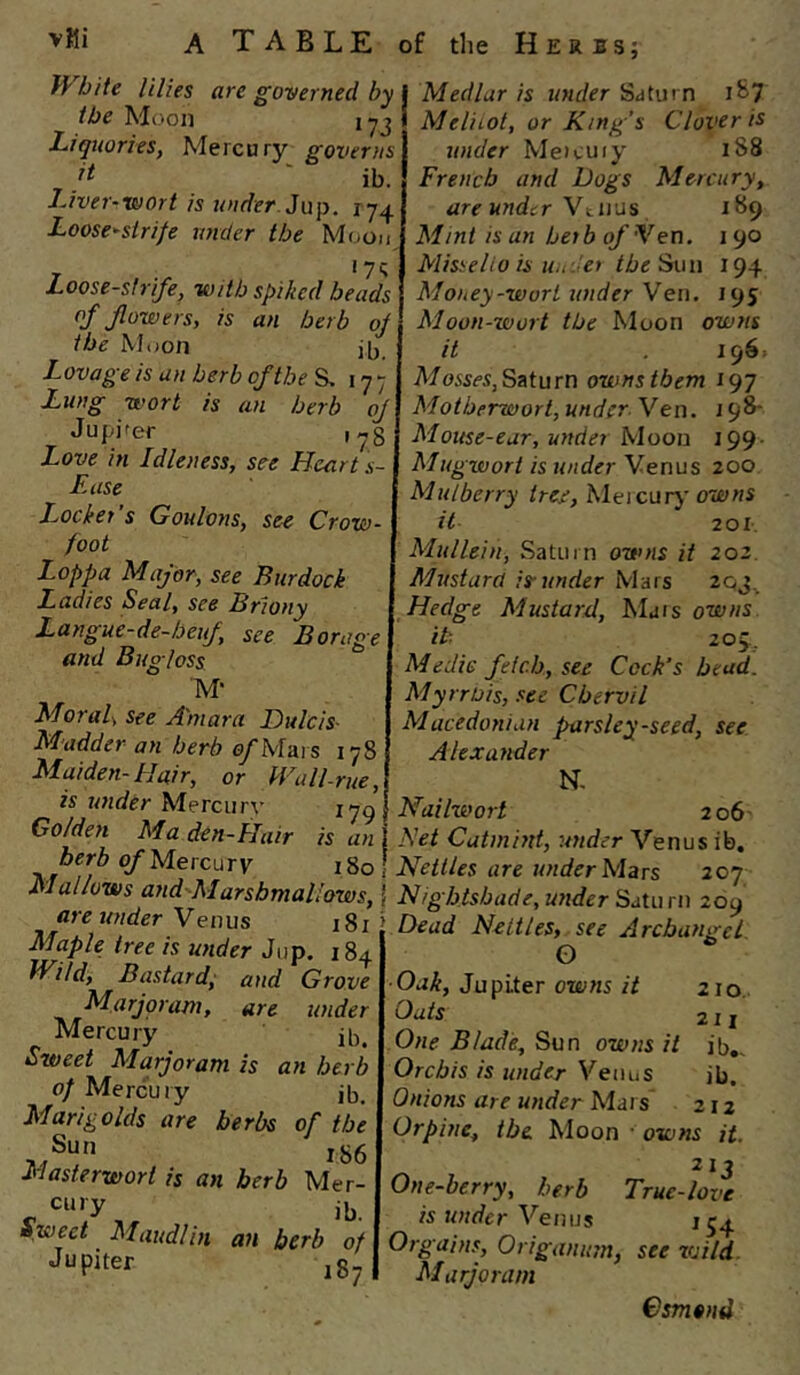 viii A TABLE of the HERBS;
White lilies are governed by
the Moon 173
Liquories, Mercury governs
it ib.
Liver-wort is under Jup. 174
Loose-strife under the Moon
175
Loose-strife, with spiked heads
of flowers, is an herb of
the Moon ib.
Lovage is an herb of the S. 177
Lung wort is an herb of
Jupiter 178
Love in Idleness, see Heart s-
Ease
Locker's Goulons, see Crow-
foot
Loppa Major, see Burdock
Ladies Seal, see Briony
Langue-de-beuf, see Borage
and Bugloss
M
Moral, see Amara Dulcis
Madder an herb of Mars 178
Maiden-Hair, or Wall-rue,
is under Mercury 179
Golden Ma den-Hair is an
herb of Mercury 180
Mallows and Marshmallows,
are under Venus 181
Maple tree is under Jup. 184
Wild, Bastard, and Grove
Marjoram, are under
Mercury ib.
Sweet Marjoram is an herb
of Mercury ib.
Marigolds are herbs of the
Sun 186
Masterwort is an herb Mer-
cury ib.
Sweet Maudlin an herb of
Jupiter 187
Medlar is under Saturn 187
Melilot, or King's Clover is
under Mercury 188
French and Dogs Mercury,
are under Venus 189
Mint is an herb of Ven. 190
Misselto is under the Sun 194
Money-wort under Ven. 195
Moon-wort the Moon owns
it 196
Mosses, Saturn owns them 197
Motherwort, under Ven. 198
Mouse-ear, under Moon 199
Mugwort is under Venus 200
Mulberry tree, Mercury owns
it 201
Mullein, Saturn owns it 202
Mustard is under Mars 203
Hedge Mustard, Mars owns
it 205
Medic fetch, see Cock's head.
Myrrhis, see Chervil
Macedonian parsley-seed, see
Alexander
N.
Nailwort 206
Net Catmint, under Venus ib.
Nettles are under Mars 207
Nightshade, under Saturn 209
Dead Nettles, see Archangel
O
Oak, Jupiter owns it 210
Oats 211
One Blade, Sun owns it ib.
Orchis is under Venus ib.
Onions are under Mars 212
Orpine, the Moon owns it.
213
One-berry, herb True-love
is under Venus 154
Orgains, Origanum, see wild
Marjoram
Osmond